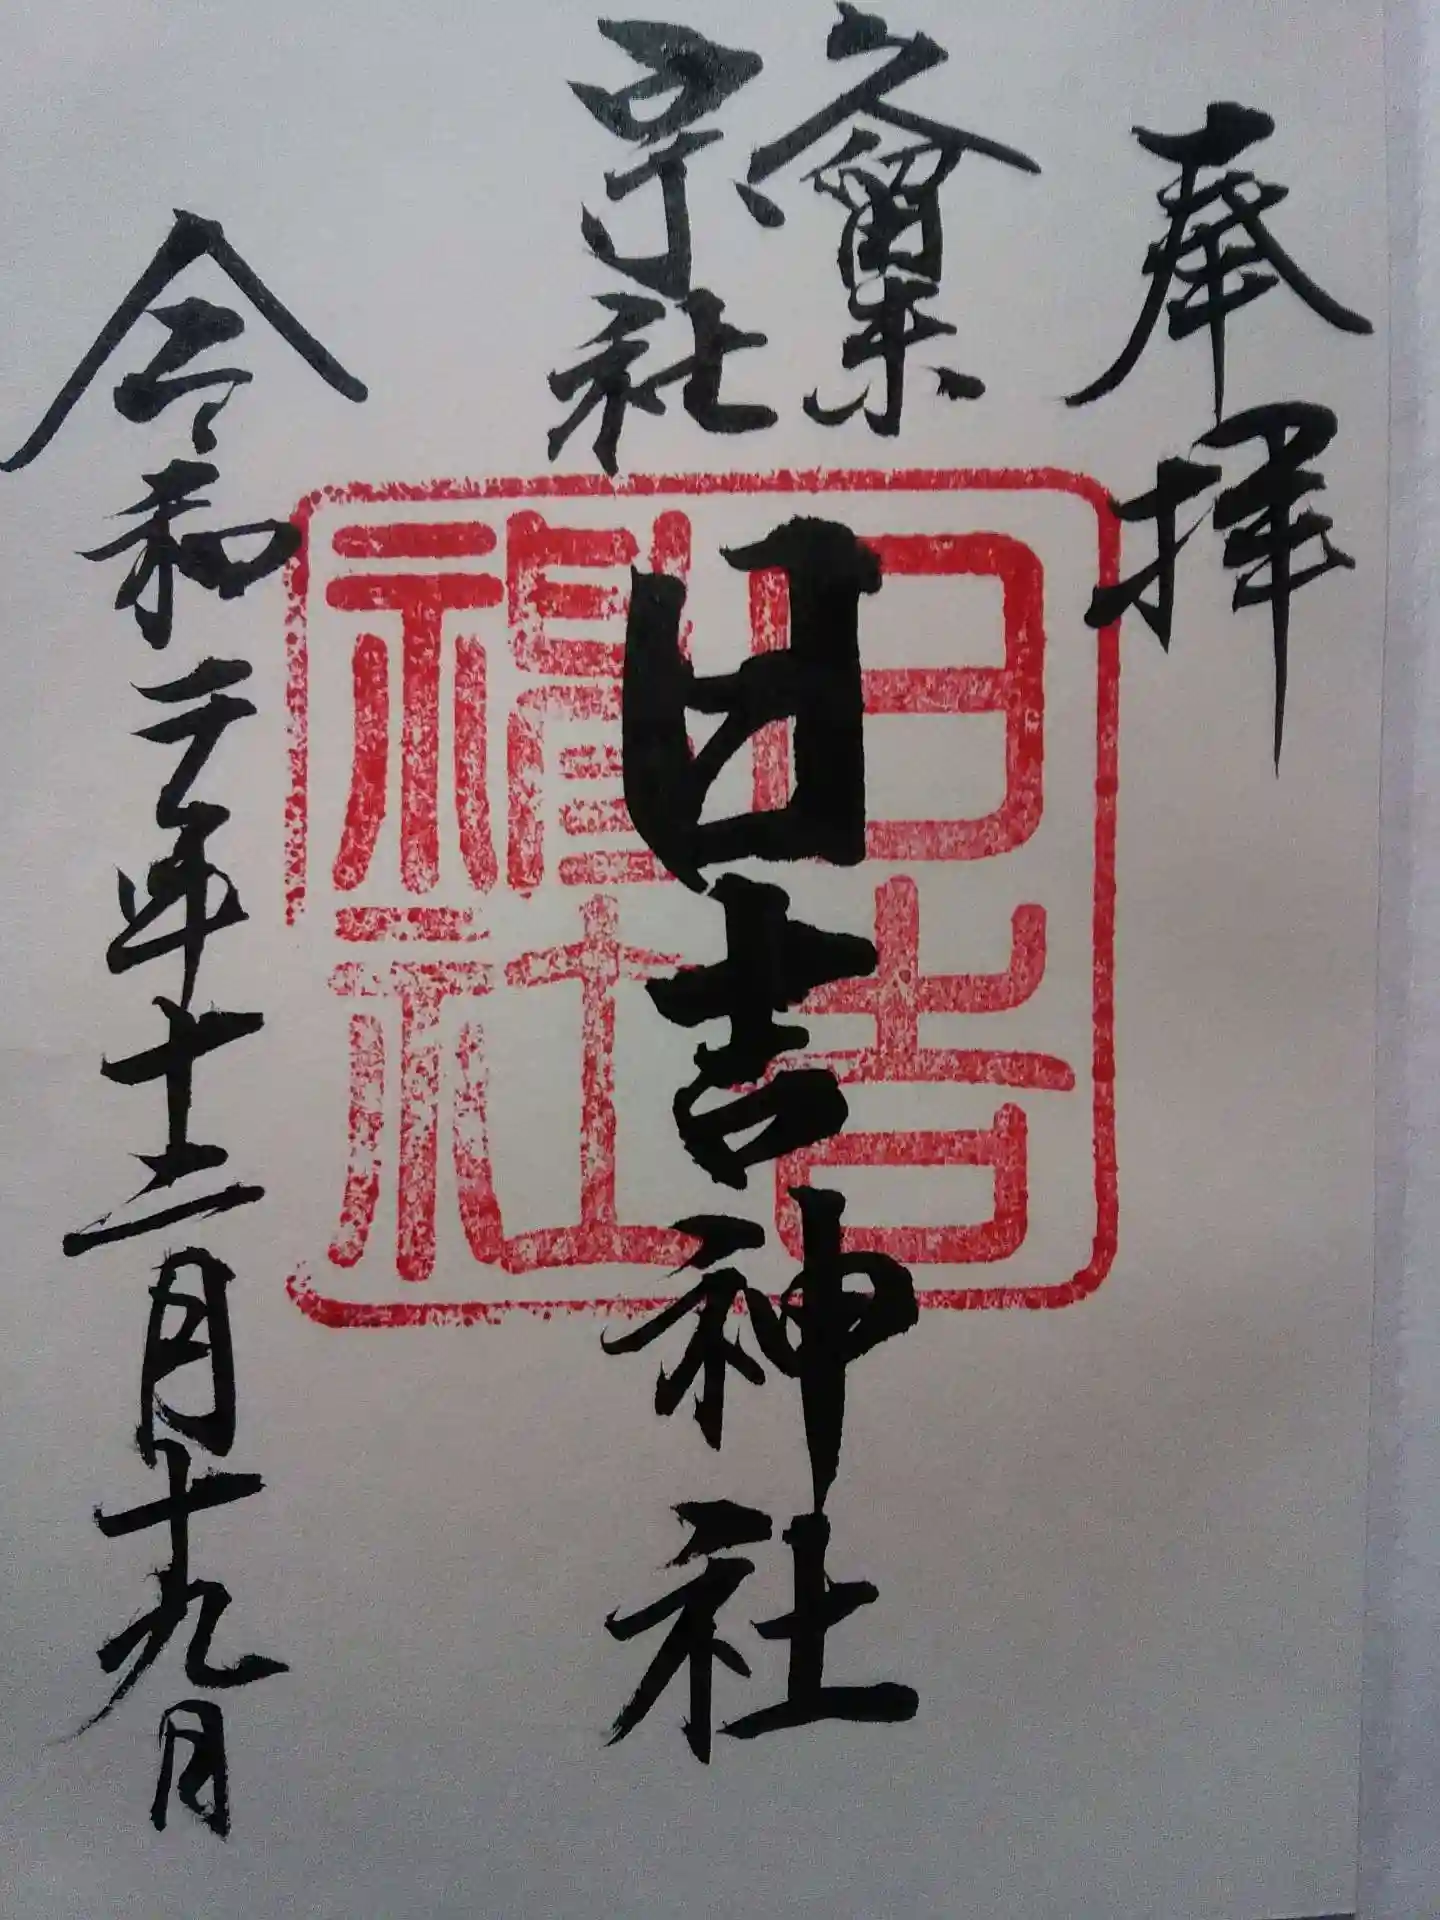 奉拝
久留米
宗社
日吉神社
日吉
神社
令和元年十二月十九日